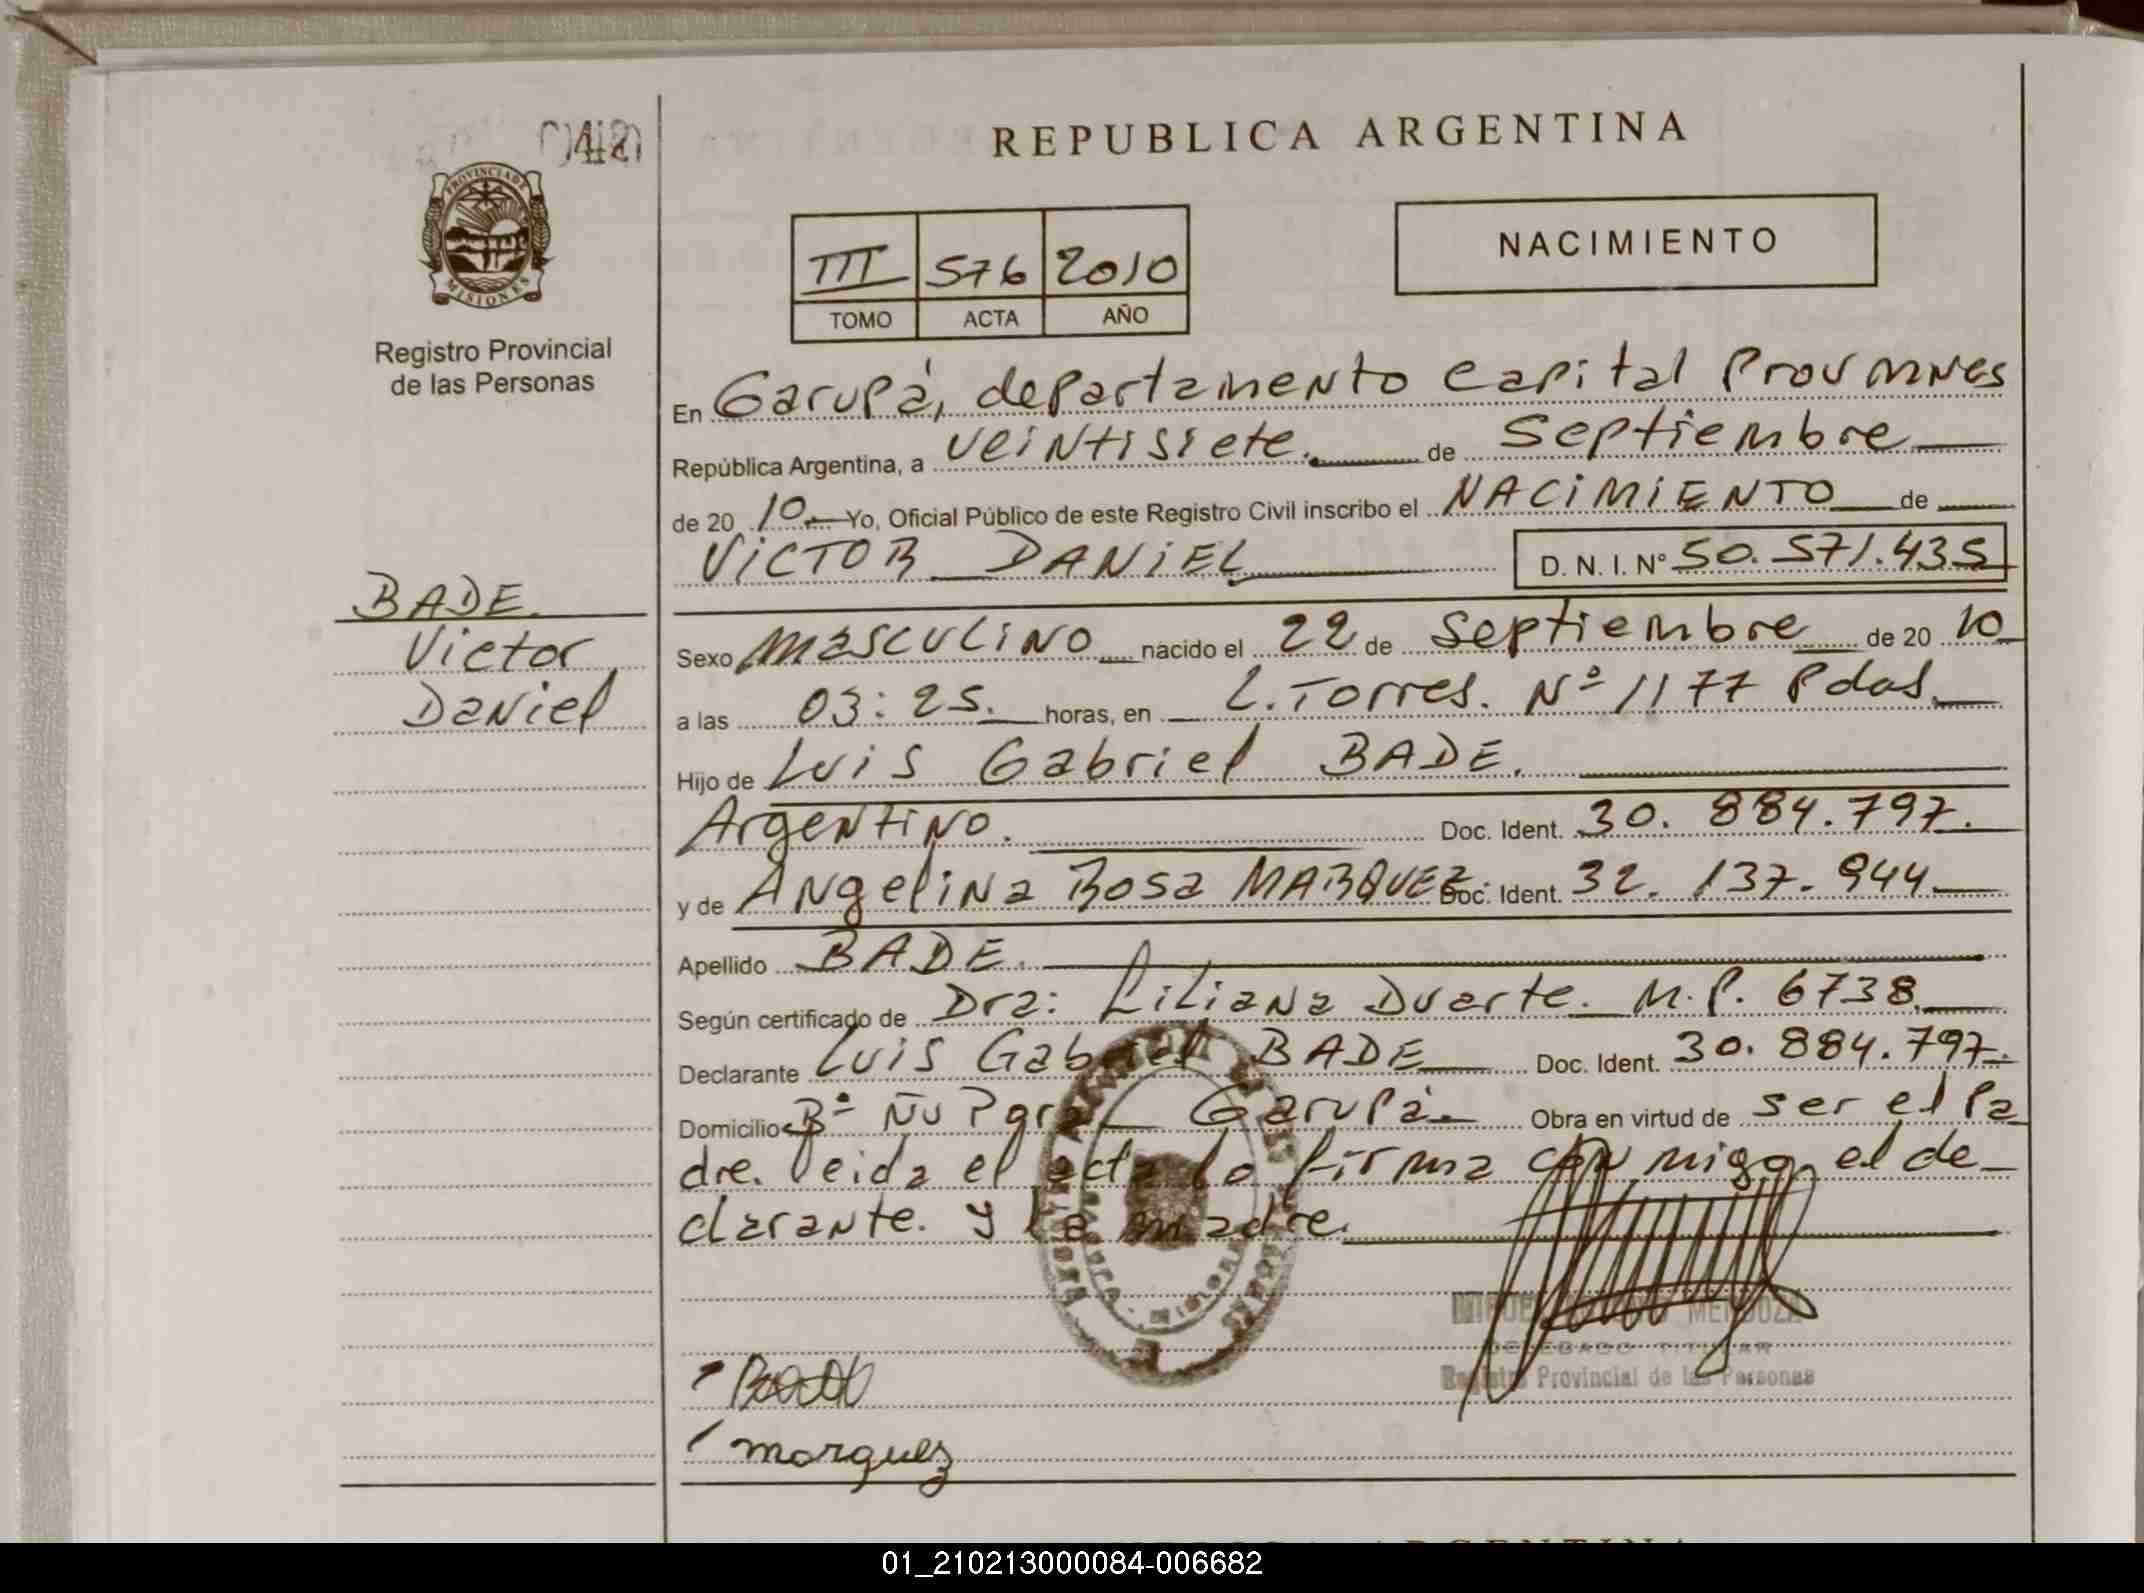 REPUBLICA ARGENTINA
PROVINCIA DE
MISIONES
Registro Provincial
de las Personas
III 576 2010
TOMO ACTA AÑO
NACIMIENTO
En Garupá, departamento Capital
República Argentina, a veintisiete. de Septiembre
de 20 10 Yo, Oficial Público de este Registro Civil inscribo el NACIMIENTO de
VICTOR DANIEL D. N. I. Nº 50.571.435
BADE.
Victor
Daniel
Sexo masculino nacido el 22 de Septiembre de 20 10
a las 03:25. horas, en L. Torres. Nº 1177 Pdas.
Hijo de Luis Gabriel BADE.
Argentino. Doc. Ident. 30.884.797.
y de Angelina Rosa MARQUEZ. Doc. Ident. 32.137.944
Apellido BADE.
Según certificado de Dra: Liliana Duarte. M.P. 6738.
Declarante Luis Gabriel BADE Doc. Ident. 30.884.797.
Domicilio Bº Ñu Garupá. Obra en virtud de ser el Pa
dre. leida el acta la firma conmigo el de
clarante. y la madre.
MENDOZA
DELEGADO TITULAR
Registro Provincial de las Personas
marquez
ARGENTINA
01_210213000084-006682